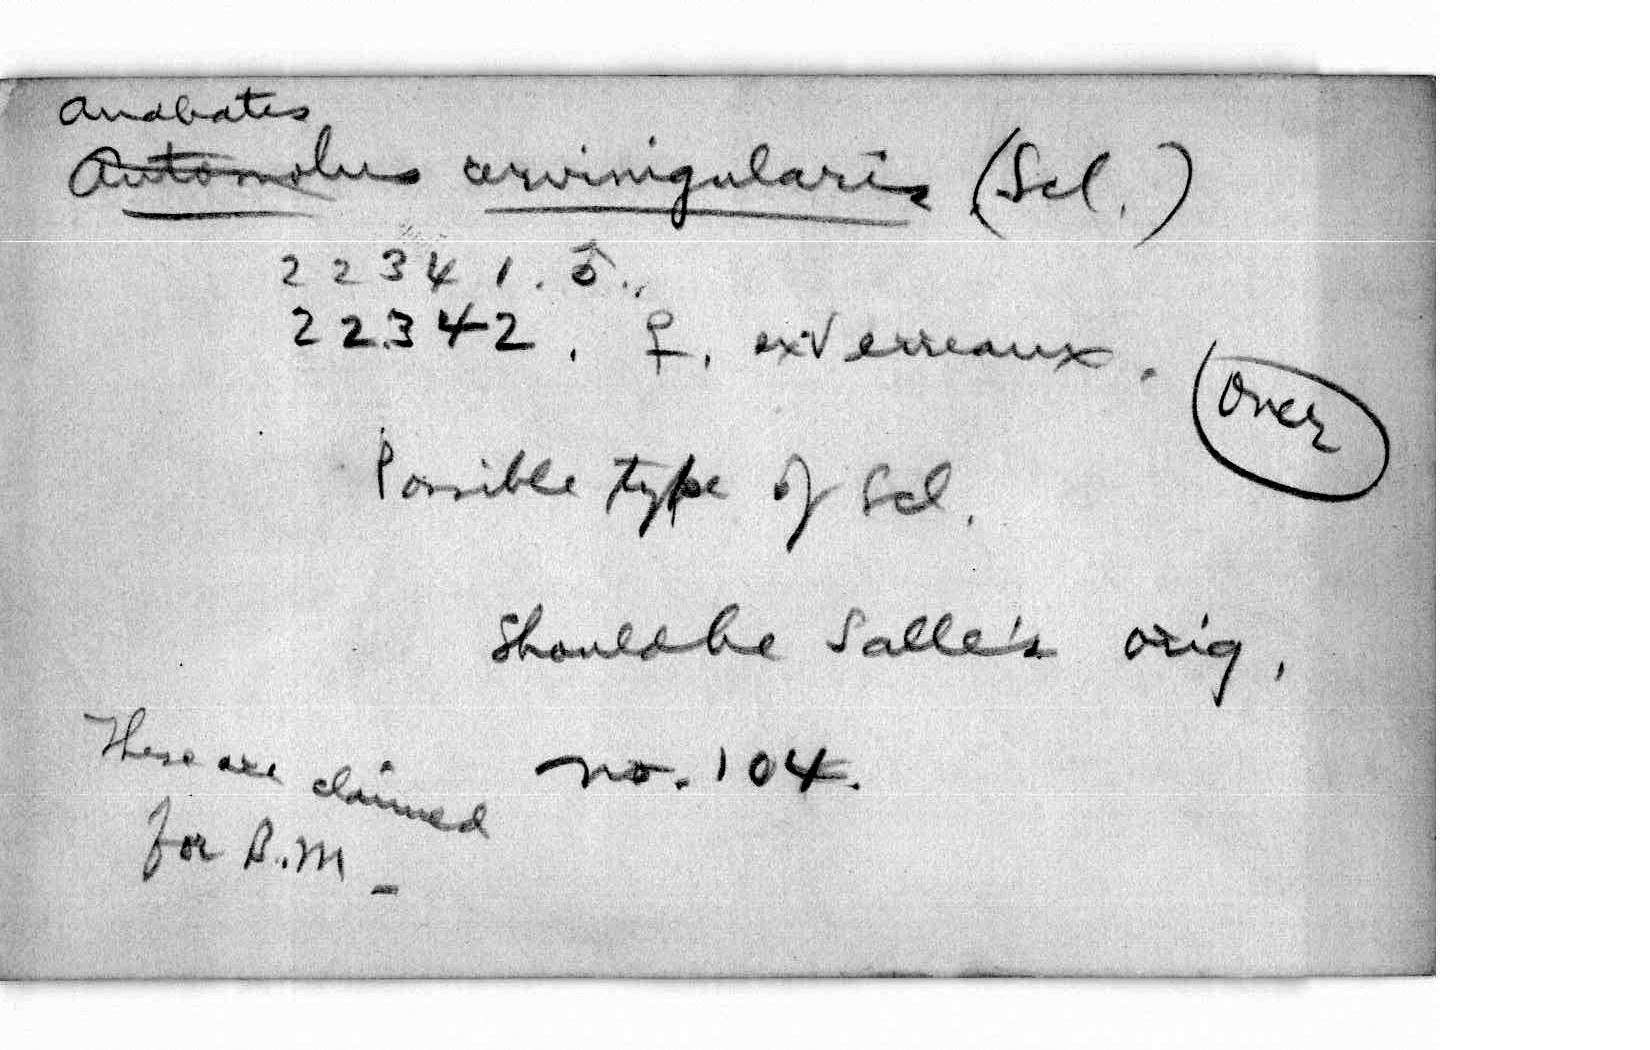 Anabates
Automolus cervinigularis (Scl.)
22341. ♂.,
22342. ♀. ex Verreaux.
Over
Possible type of Scl.
Should be Salle's orig.
no. 104.
These are claimed
for B.M_